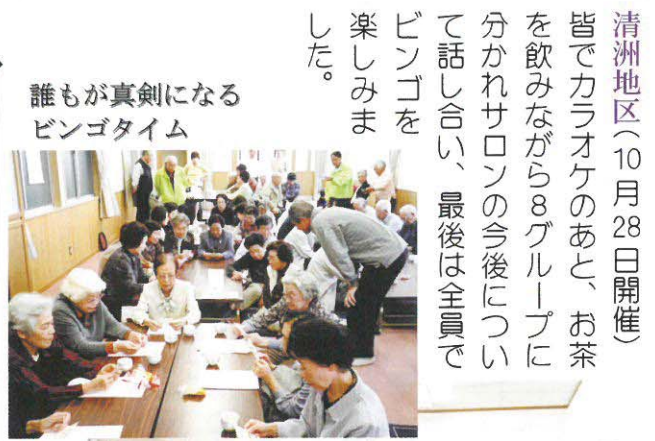 清洲地区(10月28日開催)
皆でカラオケのあと、お茶
を飲みながら8グループに
分かれサロンの今後につい
て話し合い、最後は全員で
ビンゴを
楽しみま
した。
誰もが真剣になる
ビンゴタイム